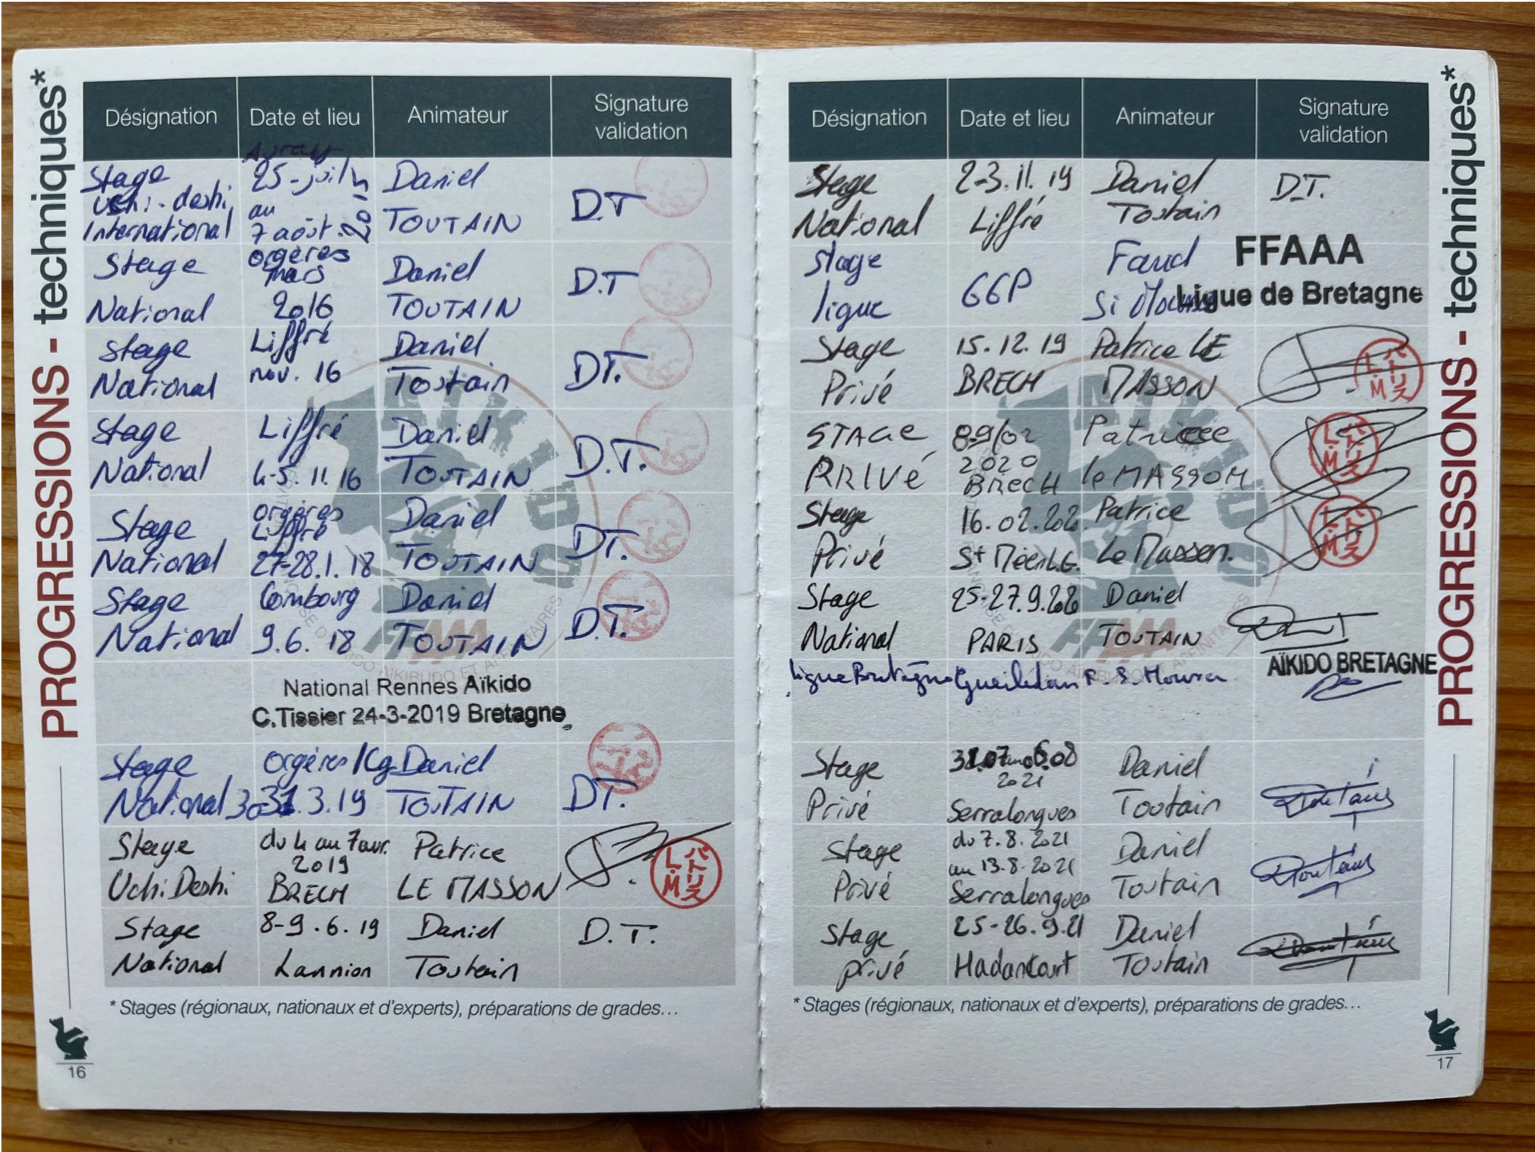 PROGRESSIONS - techniques*
Désignation Date et lieu Animateur Signature validation
Stage Uchi-deshi International 25-juil au 7 août 2015 Daniel TOUTAIN D.T
Stage National orgères mars 2016 Daniel TOUTAIN D.T
Stage National Liffré nov. 16 Daniel Toutain DT.
Stage National Liffré 4-5.11.16 Daniel TOUTAIN D.T.
Stage National orgères Liffré 27-28.1.18 Daniel TOUTAIN DT.
Stage National Combourg 9.6.18 Daniel TOUTAIN D.T.
National Rennes Aïkido
C.Tissier 24-3-2019 Bretagne
Stage National orgères 31.3.19 Daniel TOUTAIN DT.
Stage Uchi Deshi du 4 au 7 avr. 2019 BRECH Patrice LE MASSON パトリス L.M
Stage National 8-9.6.19 Lannion Daniel Toutain D.T.
* Stages (régionaux, nationaux et d'experts), préparations de grades…
16
PROGRESSIONS - techniques*
Désignation Date et lieu Animateur Signature validation
Stage National 2-3.11.19 Liffré Daniel Toutain D.T.
Stage ligue GGP Si FFAAA
Ligue de Bretagne
Stage Privé 15.12.19 BRECH Patrice LE MASSON パトリス L.M
STAGE PRIVÉ 8-9/02 2020 BRECH Patrice le MASSON パトリス L.M
Stage Privé 16.02.2020 St Méen LG. Patrice Le Masson. パトリス L.M
Stage National 25-27.9.2020 PARIS Daniel TOUTAIN
ligue Bretagne
AÏKIDO BRETAGNE
Stage Privé 2021 Serralongues Daniel Toutain Dtoutain
Stage Privé du 7.8.2021 au 13.8.2021 Serralongues Daniel Toutain Dtoutain
Stage privé 25-26.9.21 Hadancourt Daniel Toutain Dtoutain
* Stages (régionaux, nationaux et d'experts), préparations de grades…
17
AIKIDO
FFAAA